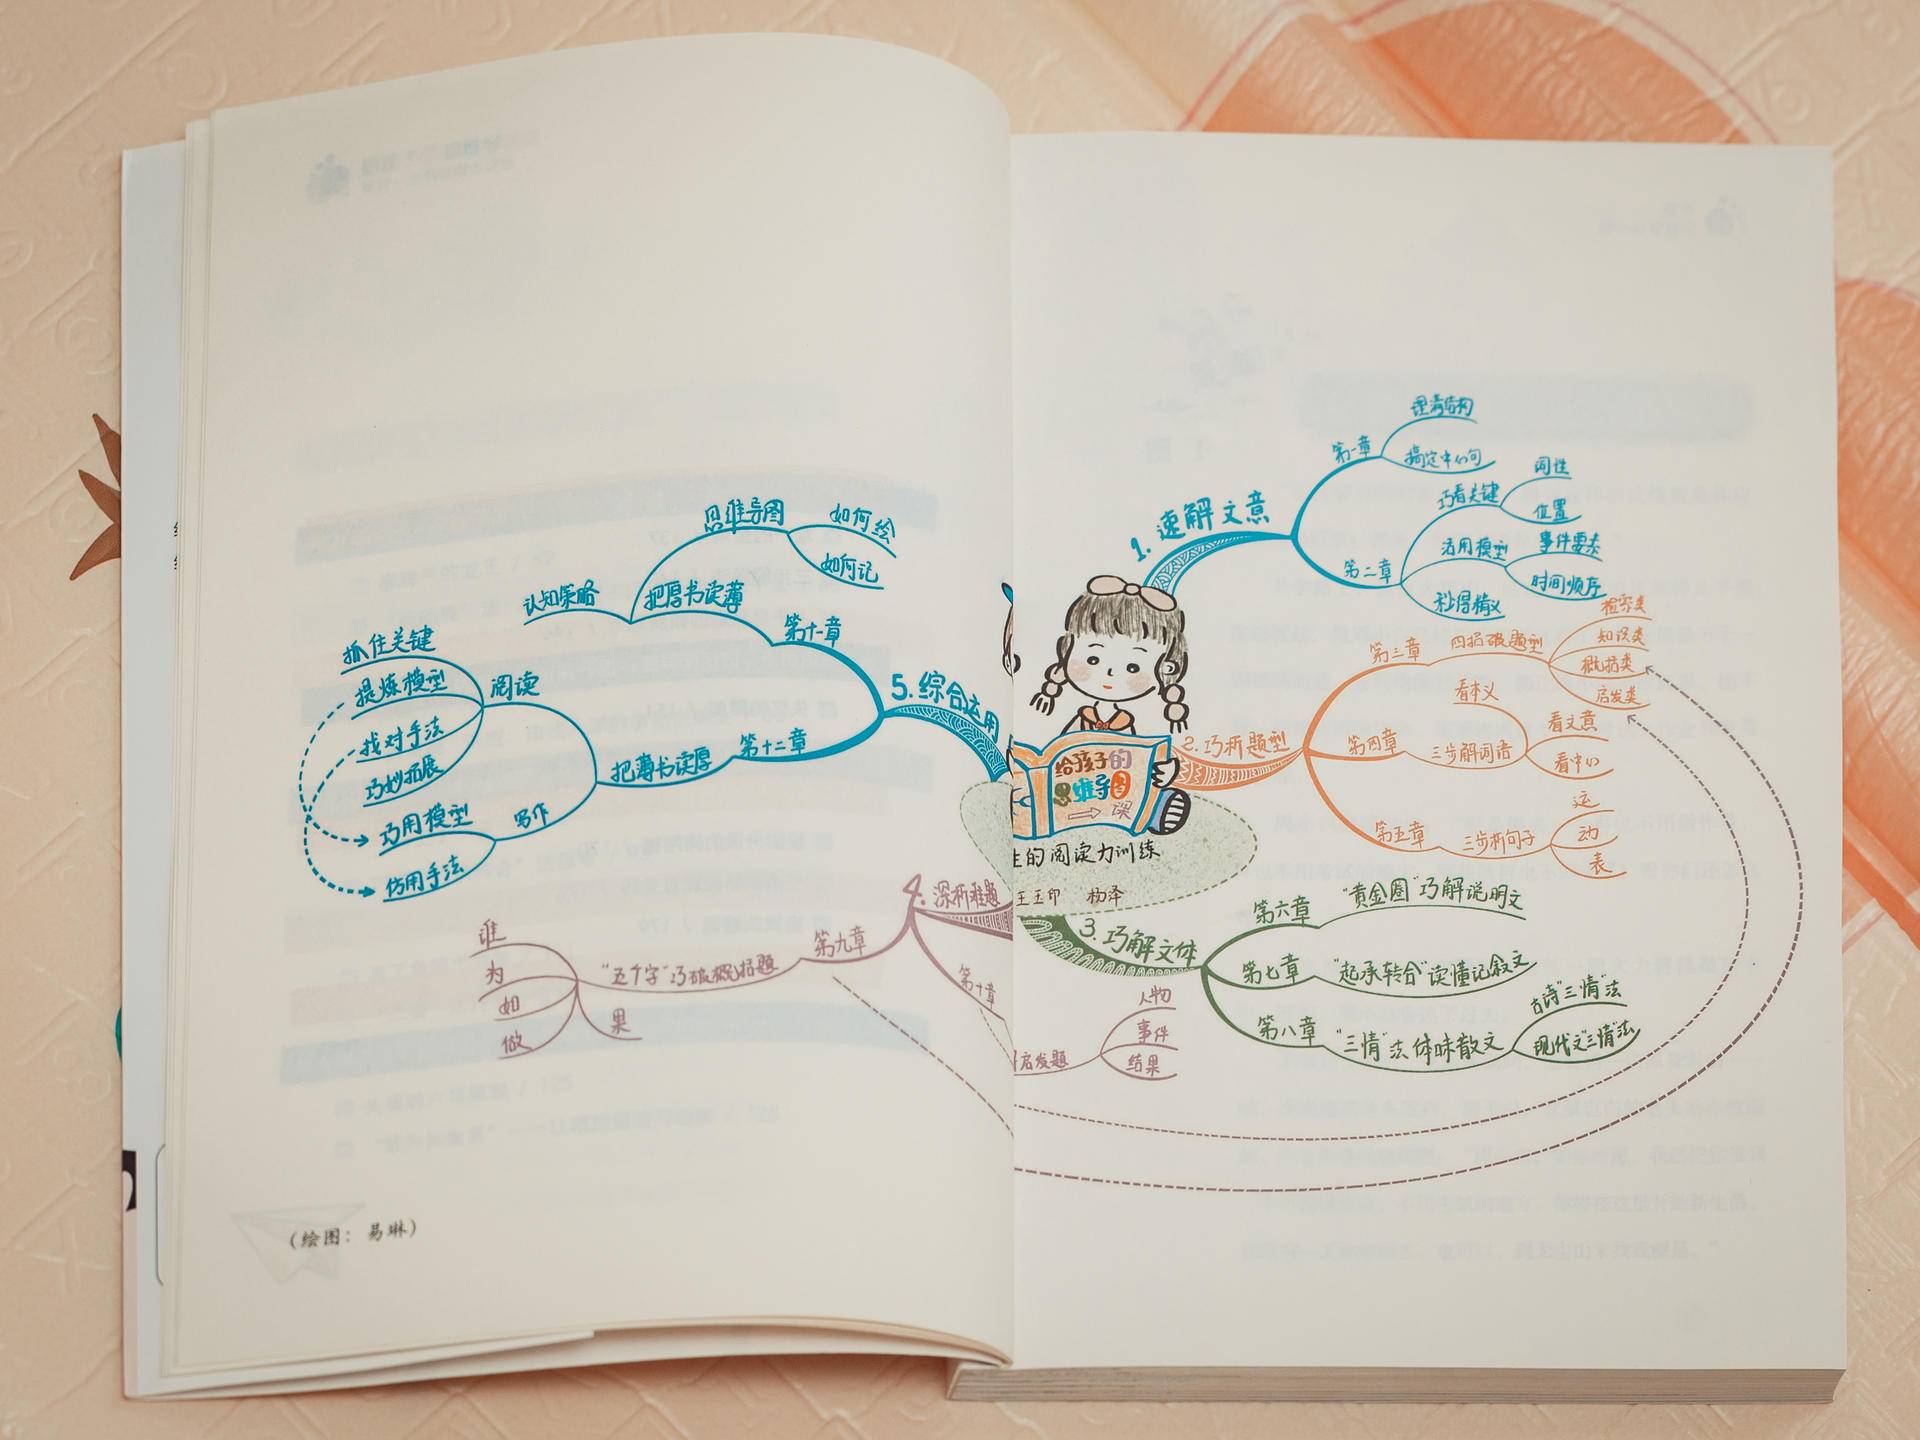 思维导图
如何绘
如何记
认知策略
把厚书读薄
第十一章
5. 综合运用
抓住关键
提炼模型
阅读
找对手法
巧妙拓展
第十二章
把薄书读厚
巧用模型
写作
仿用手法
4. 深析难题
第九章
"五个字"巧破概括题
谁
为
如
做
果
第十章
(绘图：易琳)
1. 速解文意
第一章
理清结构
搞定中心句
第二章
巧看关键
词性
位置
活用模型
事件要素
时间顺序
秒得精义
2. 巧析题型
第三章
四招破题型
检索类
知识类
概括类
启发类
第四章
三步解词语
看本义
看文意
看中心
第五章
三步析句子
运
动
表
给孩子的
思维导图
课
生的阅读力训练
王玉印 杨泽
3. 巧解文体
第六章
"黄金圈"巧解说明文
第七章
"起承转合"读懂记叙文
第八章
"三情"法体味散文
古诗"三情"法
现代文"三情"法
启发题
人物
事件
结果